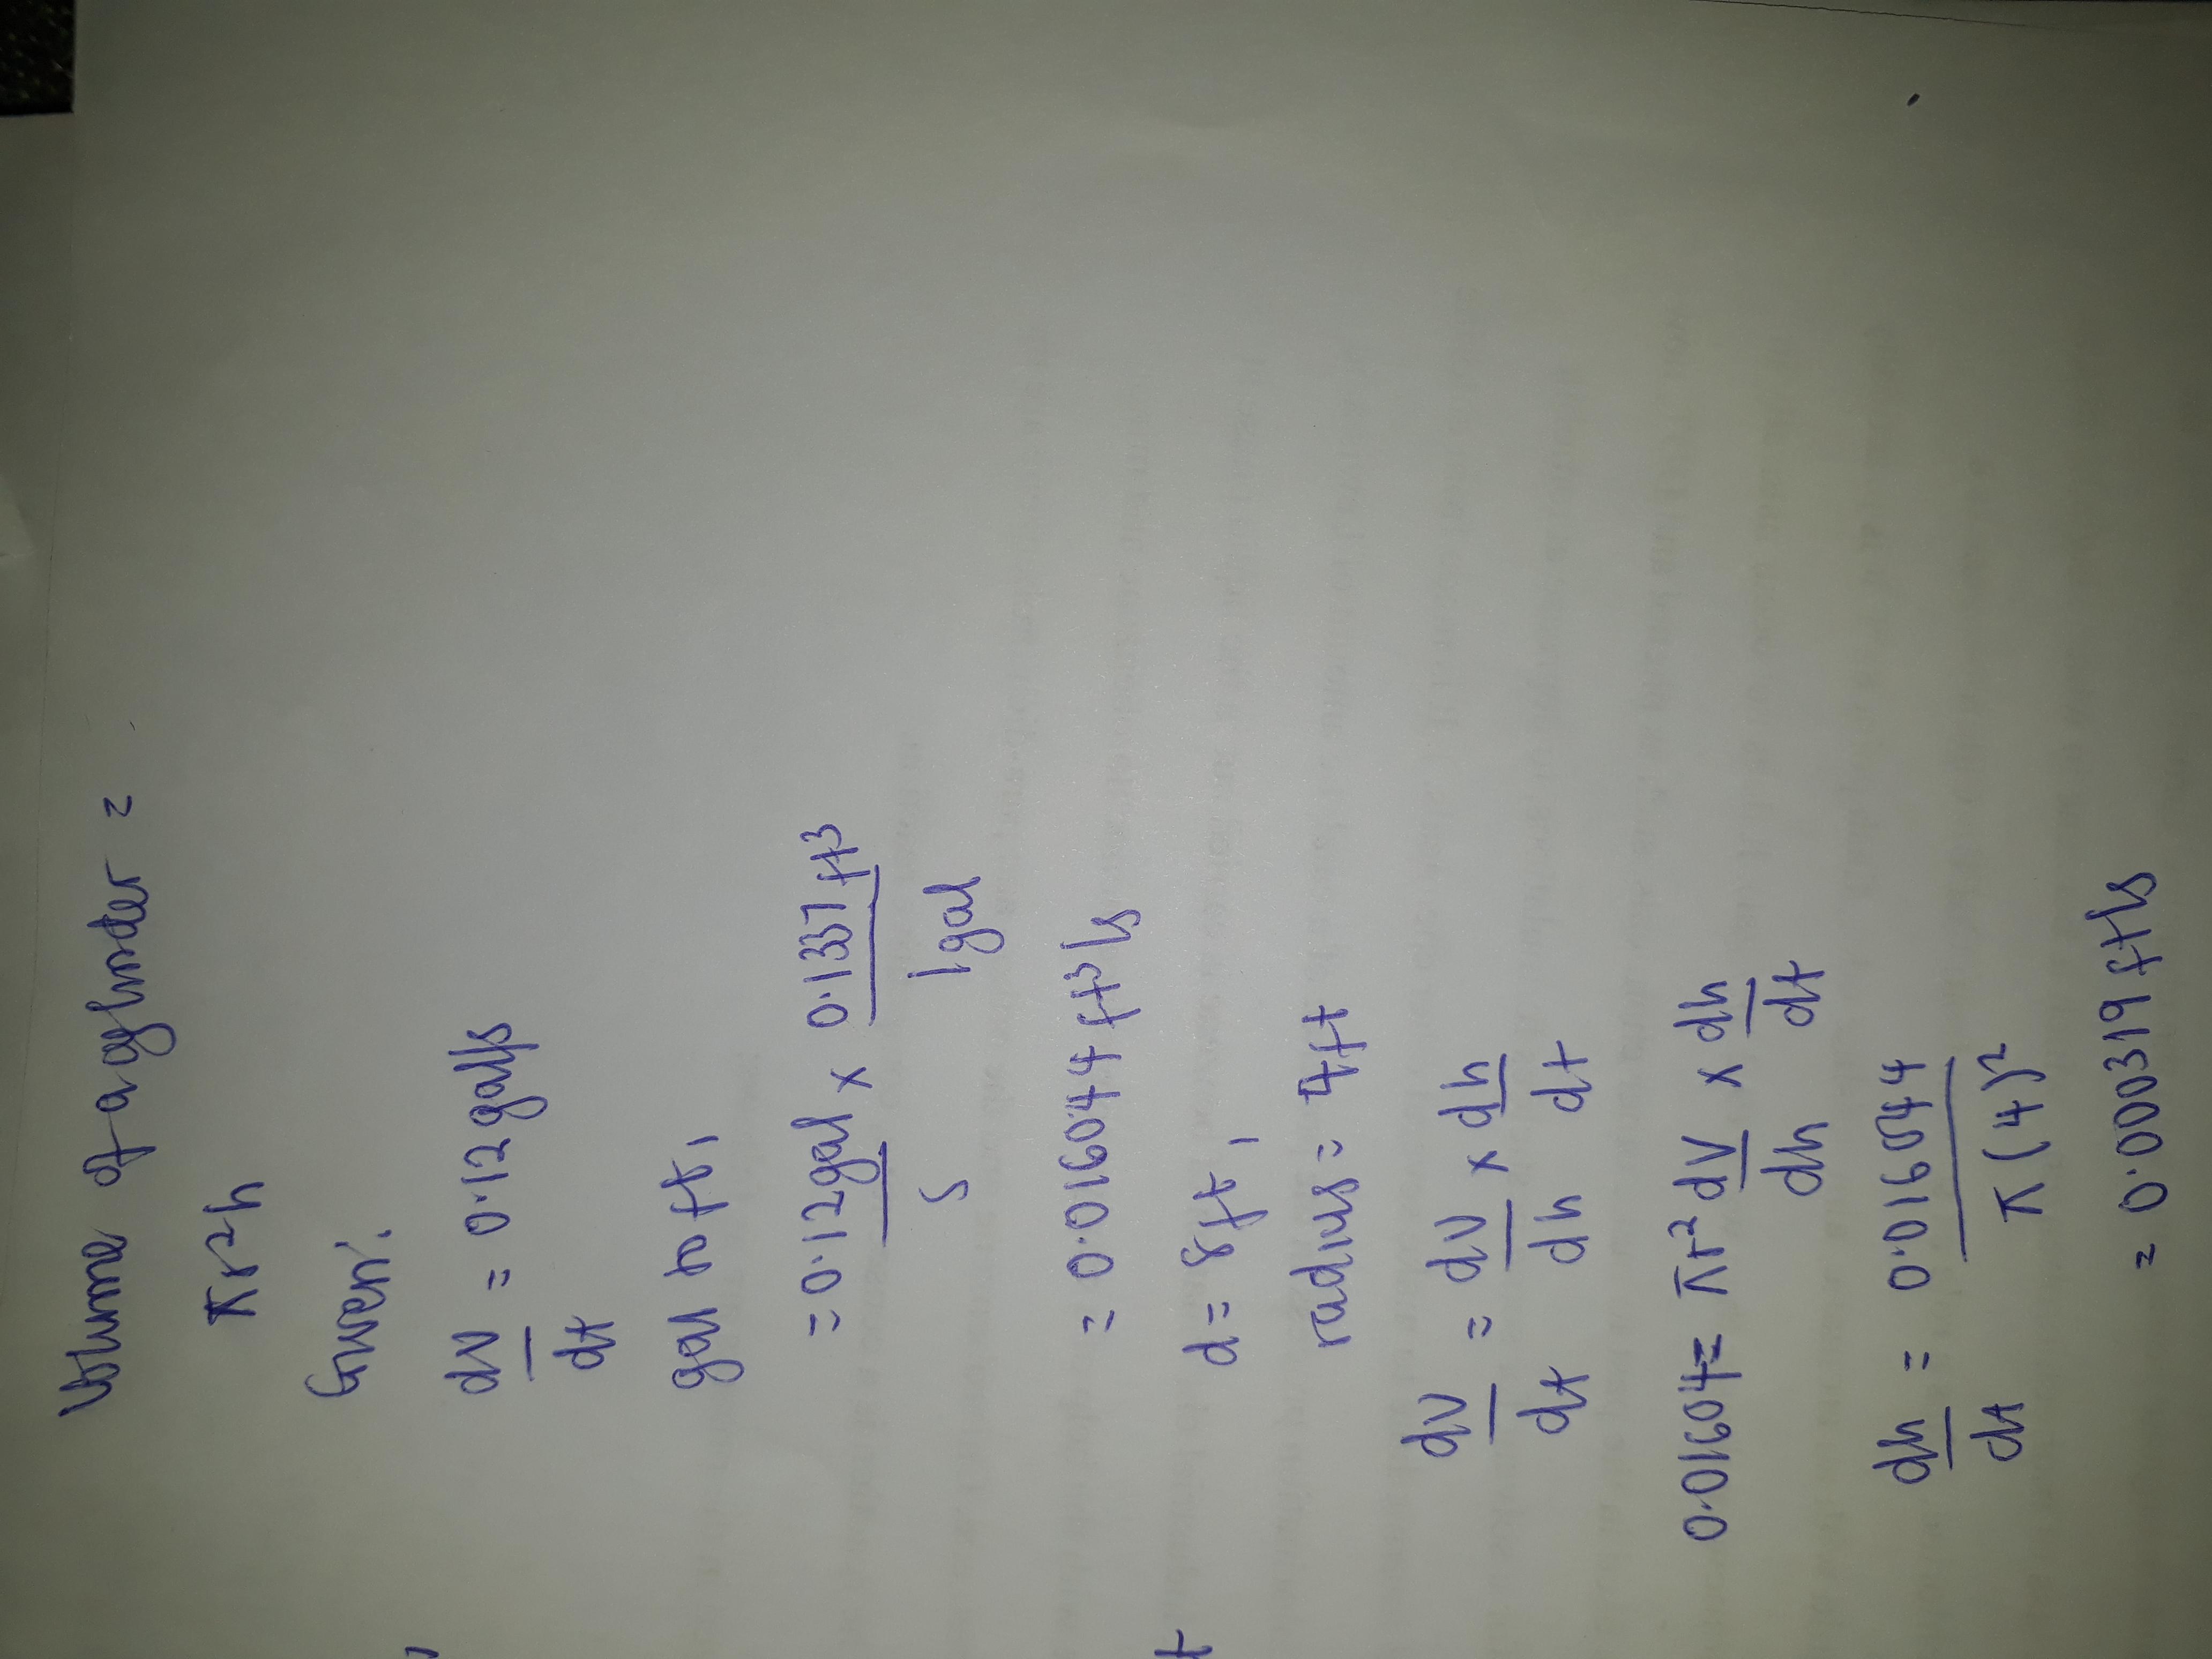 Volume of a cylinder =
πr²h
Given:
dV/dt = 0.12 gal/s
gal to ft,
= 0.12gal/s × 0.1337ft³/1gal
= 0.016044 ft³/s
d = 8ft,
radius = 4ft
dV/dt = dV/dh × dh/dt
0.01604 = πr² dV/dh × dh/dt
dh/dt = 0.016044/π(4)²
= 0.000319 ft/s